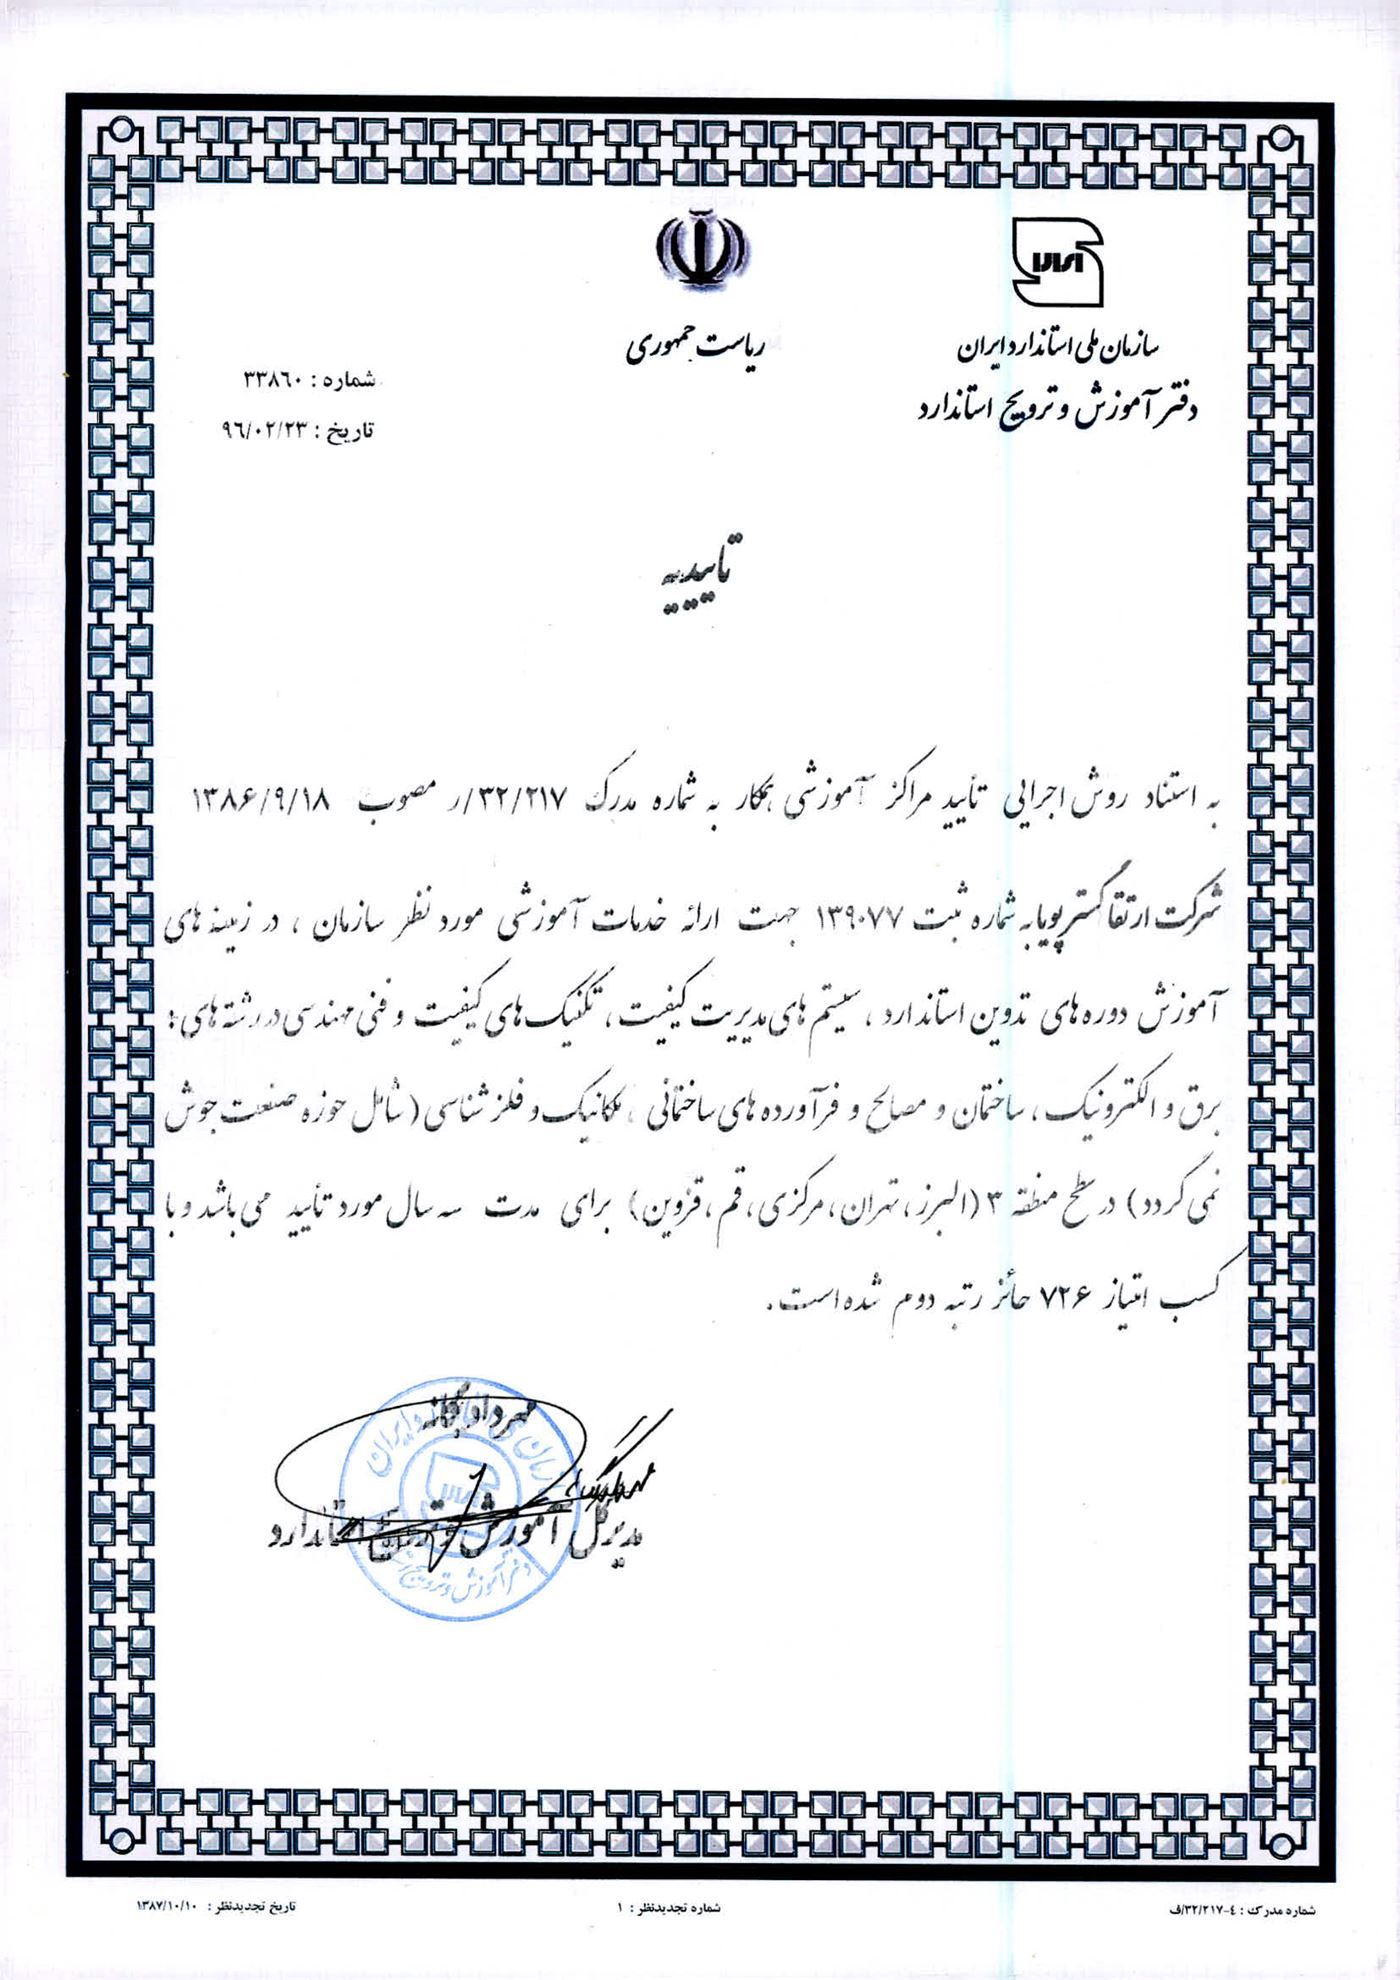 سازمان ملی استاندارد ایران
دفتر آموزش و ترویج استاندارد
ریاست جمهوری
شماره : ٣٣٨٦٠
تاریخ : ٩٦/٠٢/٢٣
تاییدیه
به استناد روش اجرایی تأیید مراکز آموزشی همکار به شماره مدرک ۳۲/۲۱۷/ر مصوب ۱۳۸۶/۹/۱۸
شرکت ارتقا گستر پویا به شماره ثبت ۱۳۹۰۷۷ جهت ارائه خدمات آموزشی مورد نظر سازمان ، در زمینه های
آموزش دوره های تدوین استاندارد ، سیستم های مدیریت کیفیت ، تکنیک های کیفیت و فنی مهندسی در رشته های :
برق و الکترونیک ، ساختمان و مصالح و فرآورده های ساختمانی ، مکانیک و فلز شناسی (شامل حوزه صنعت جوش
نمی گردد) در سطح منطقه ۳ (البرز ، تهران ، مرکزی ، قم ، قزوین) برای مدت سه سال مورد تأیید می باشد و با
کسب امتیاز ۷۲۶ حائز رتبه دوم شده است .
مهرداد یگانه
مدیرکل آموزش و ترویج استاندارد
دفتر آموزش و ترویج استاندارد
شماره مدرک : ٤-٣٢/٢١٧/ف
شماره تجدیدنظر : ١
تاریخ تجدیدنظر : ١٣٨٧/١٠/١٠